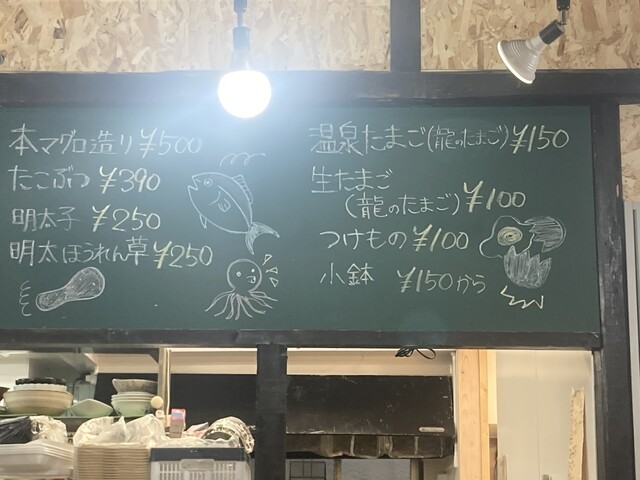 本マグロ造り ¥500
たこぶつ ¥390
明太子 ¥250
明太ほうれん草 ¥250
温泉たまご(龍のたまご) ¥150
生たまご
(龍のたまご) ¥100
つけもの ¥100
小鉢 ¥150から